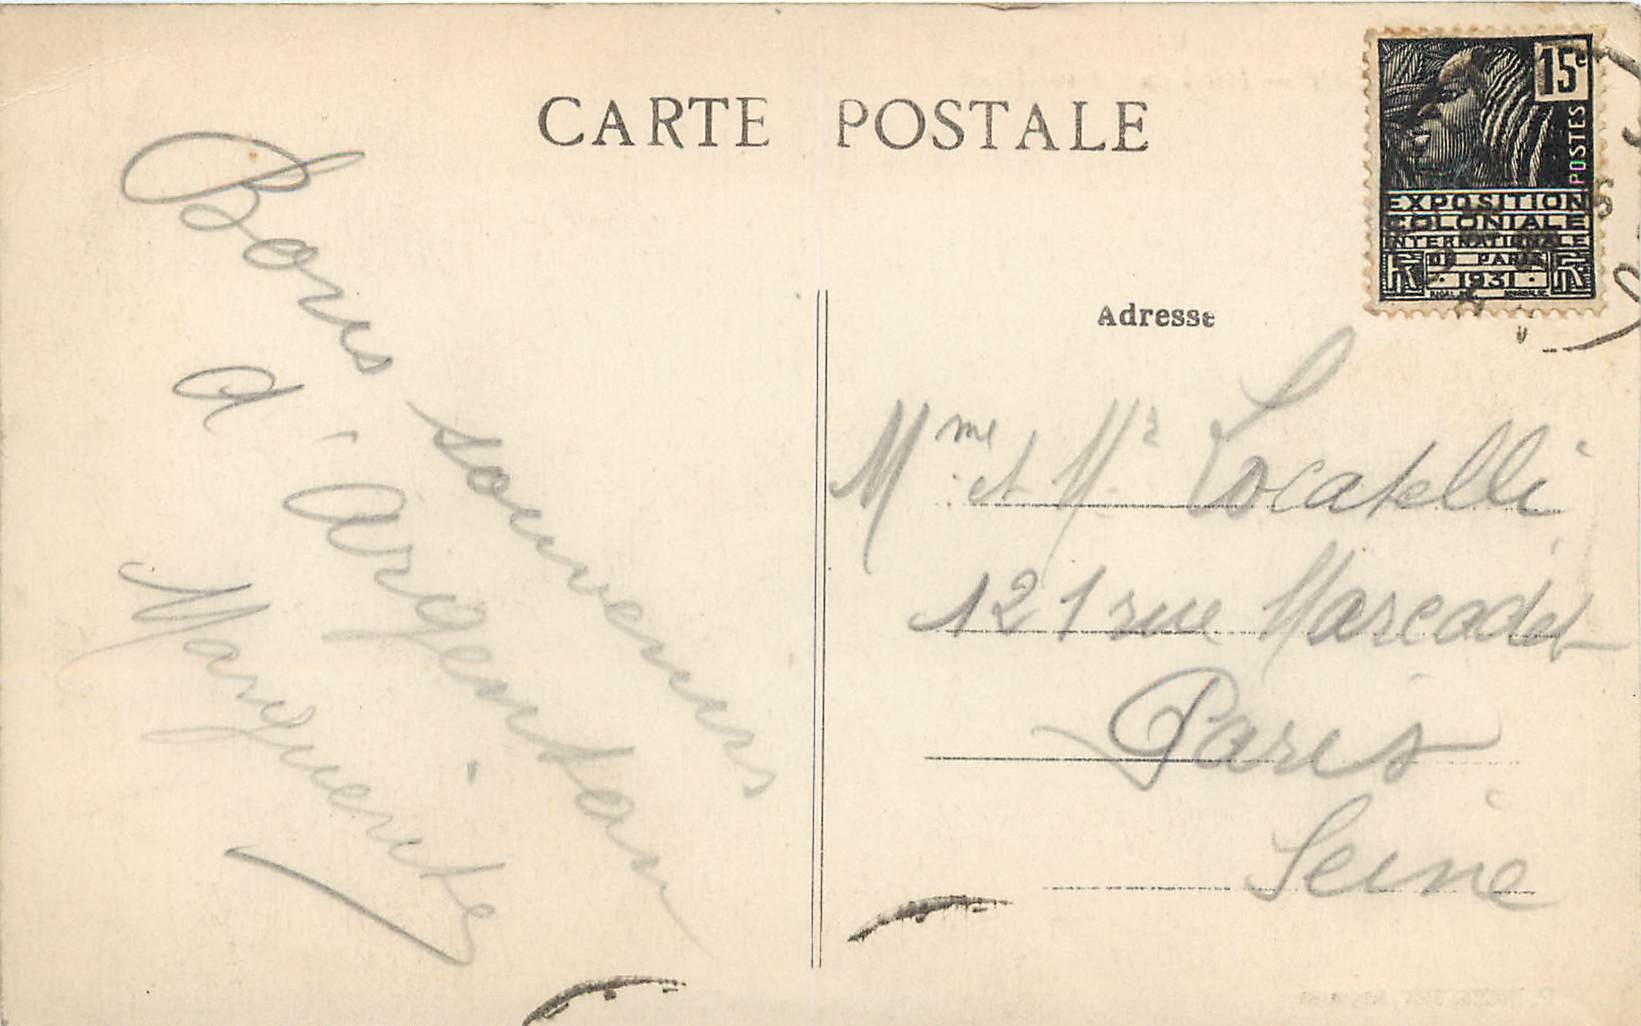 CARTE POSTALE
15c
POSTES
EXPOSITION
COLONIALE
INTERNATIONALE
DE PARIS
1931
Bons souvenirs
d'Argenton
Marguerite
Adresse
Mme et Mr Locatelli
121 rue Marcadet
Paris
Seine